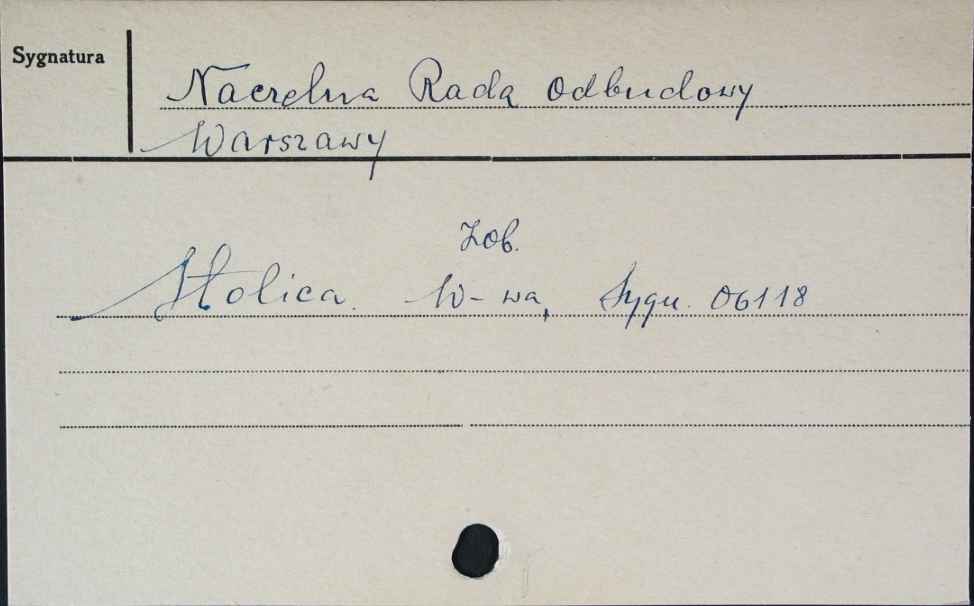 Sygnatura
Naczelna Rada Odbudowy
Warszawy
Zob.
Stolica. W-wa, Sygn. 06118